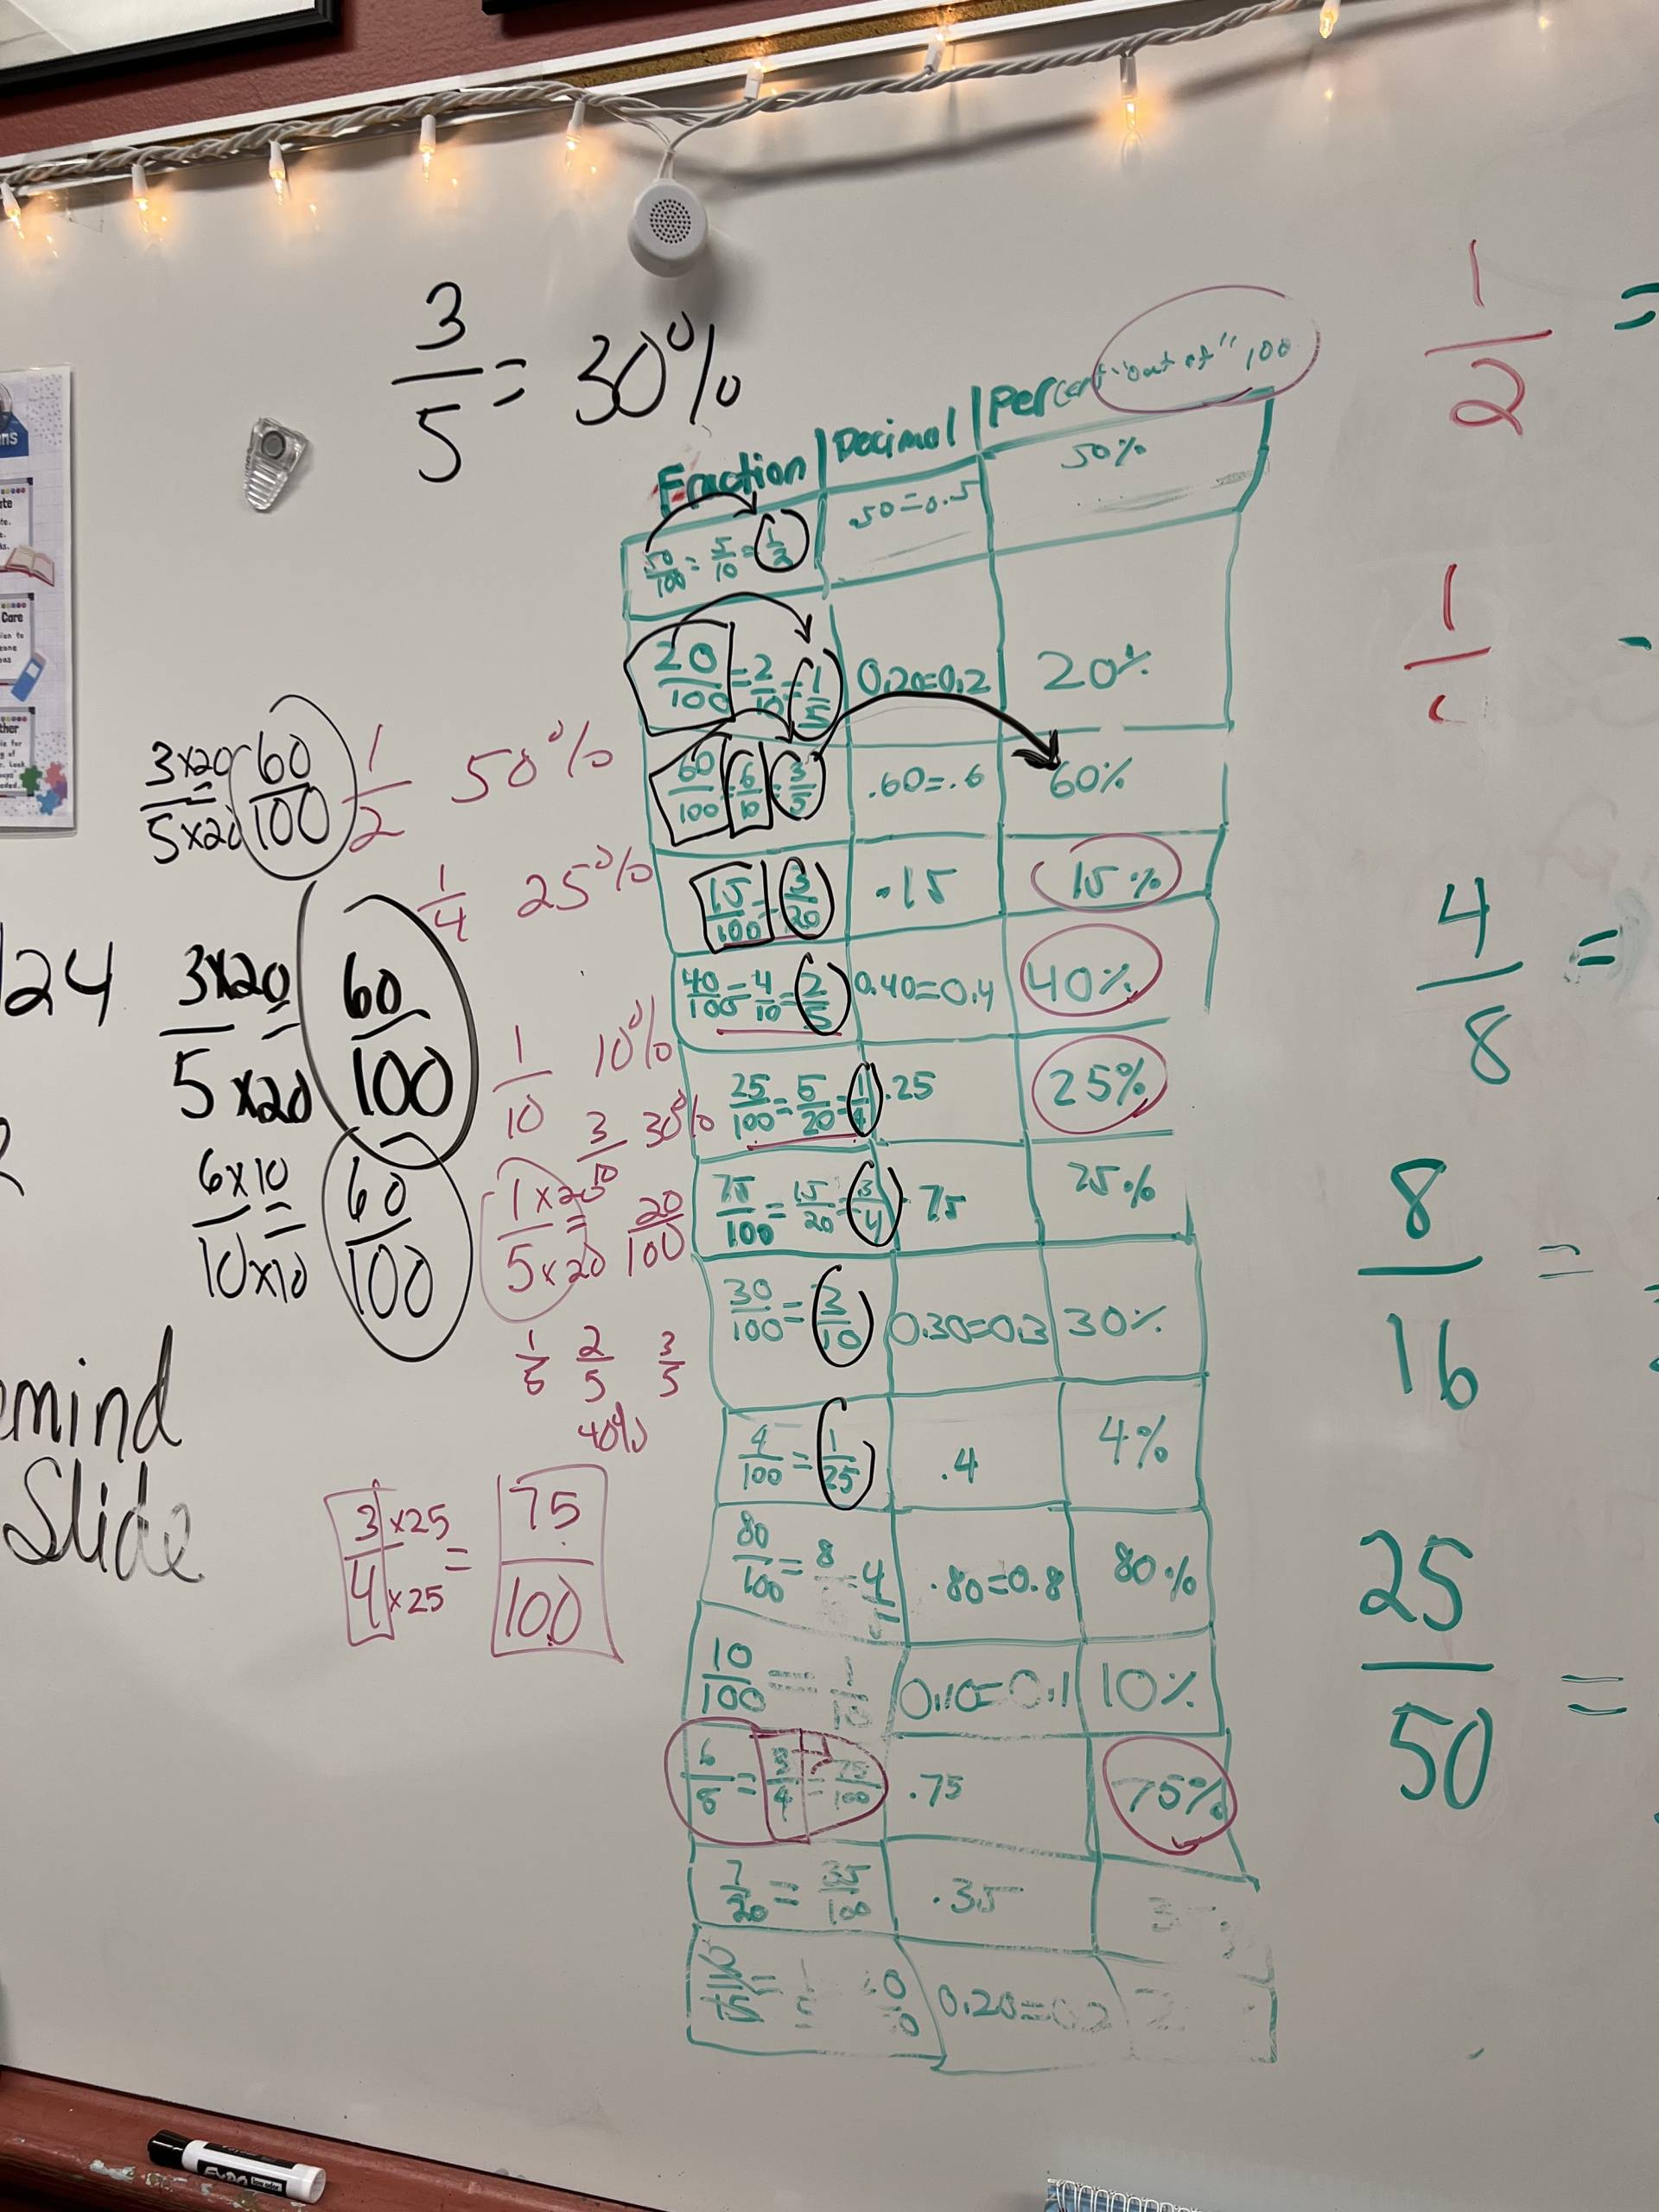 3/5 = 30%
Fraction | Decimal | Percent "out of" 100
50/100 = 5/10 = 1/2 | .50=0.5 | 50%
20/100 = 2/10 = 1/5 | 0.20=0.2 | 20%
60/100 = 6/10 = 3/5 | .60=.6 | 60%
15/100 = 3/20 | .15 | 15%
40/100 = 4/10 = 2/5 | 0.40=0.4 | 40%
25/100 = 5/20 = 1/4 | .25 | 25%
75/100 = 15/20 = 3/4 | .75 | 75%
30/100 = 3/10 | 0.30=0.3 | 30%
4/100 = 1/25 | .4 | 4%
80/100 = 8 = 4 | .80=0.8 | 80%
10/100 = 1/10 | 0.10=0.1 | 10%
6/8 = 3/4 = 75/100 | .75 | 75%
7/20 = 35/100 | .35 | 3
0.20=0.2 | 2
3x20/5x20 = 60/100
1/2 50%
1/4 25%
124
3x20/5x20 = 60/100
1/10 10%
3/10 30%
6x10/10x10 = 60/100
1x20/5x20 = 20/100
1/5 2/5 3/5
40%
emind
Slide
3x25/4x25 = 75/100
1/2 =
1
4/8 =
8/16 =
25/50 =
ate
Care
ther
EXPO